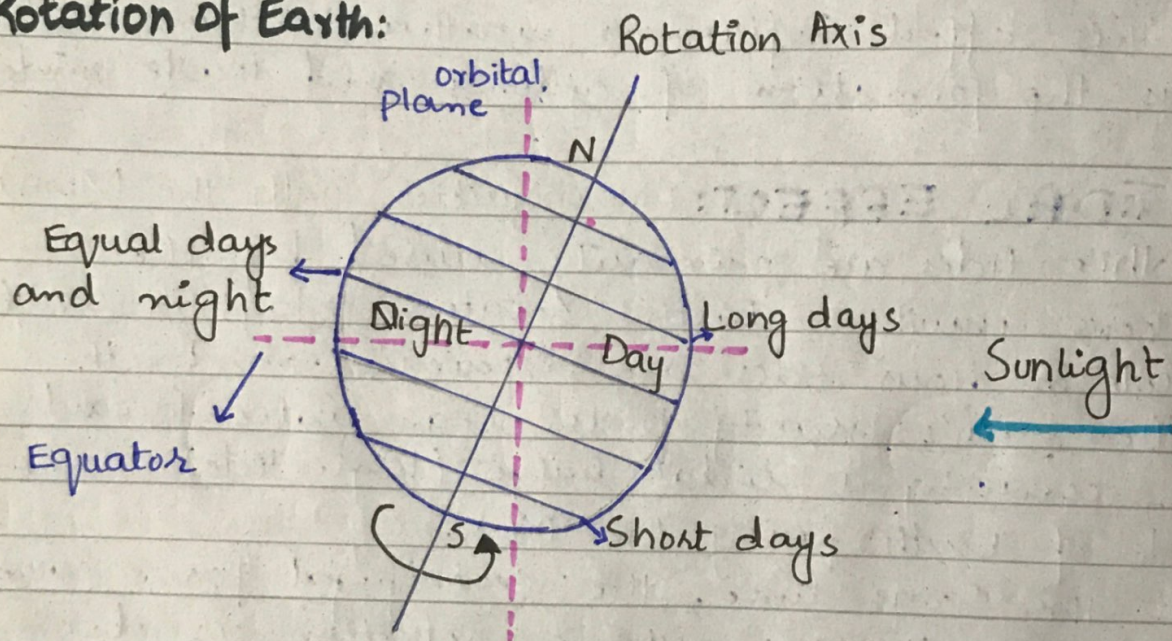 Rotation Of Earth:
Rotation Axis
orbital
plane
N
Equal days
and night
Night
Long days
Day
Sunlight
Equator
S
Short days